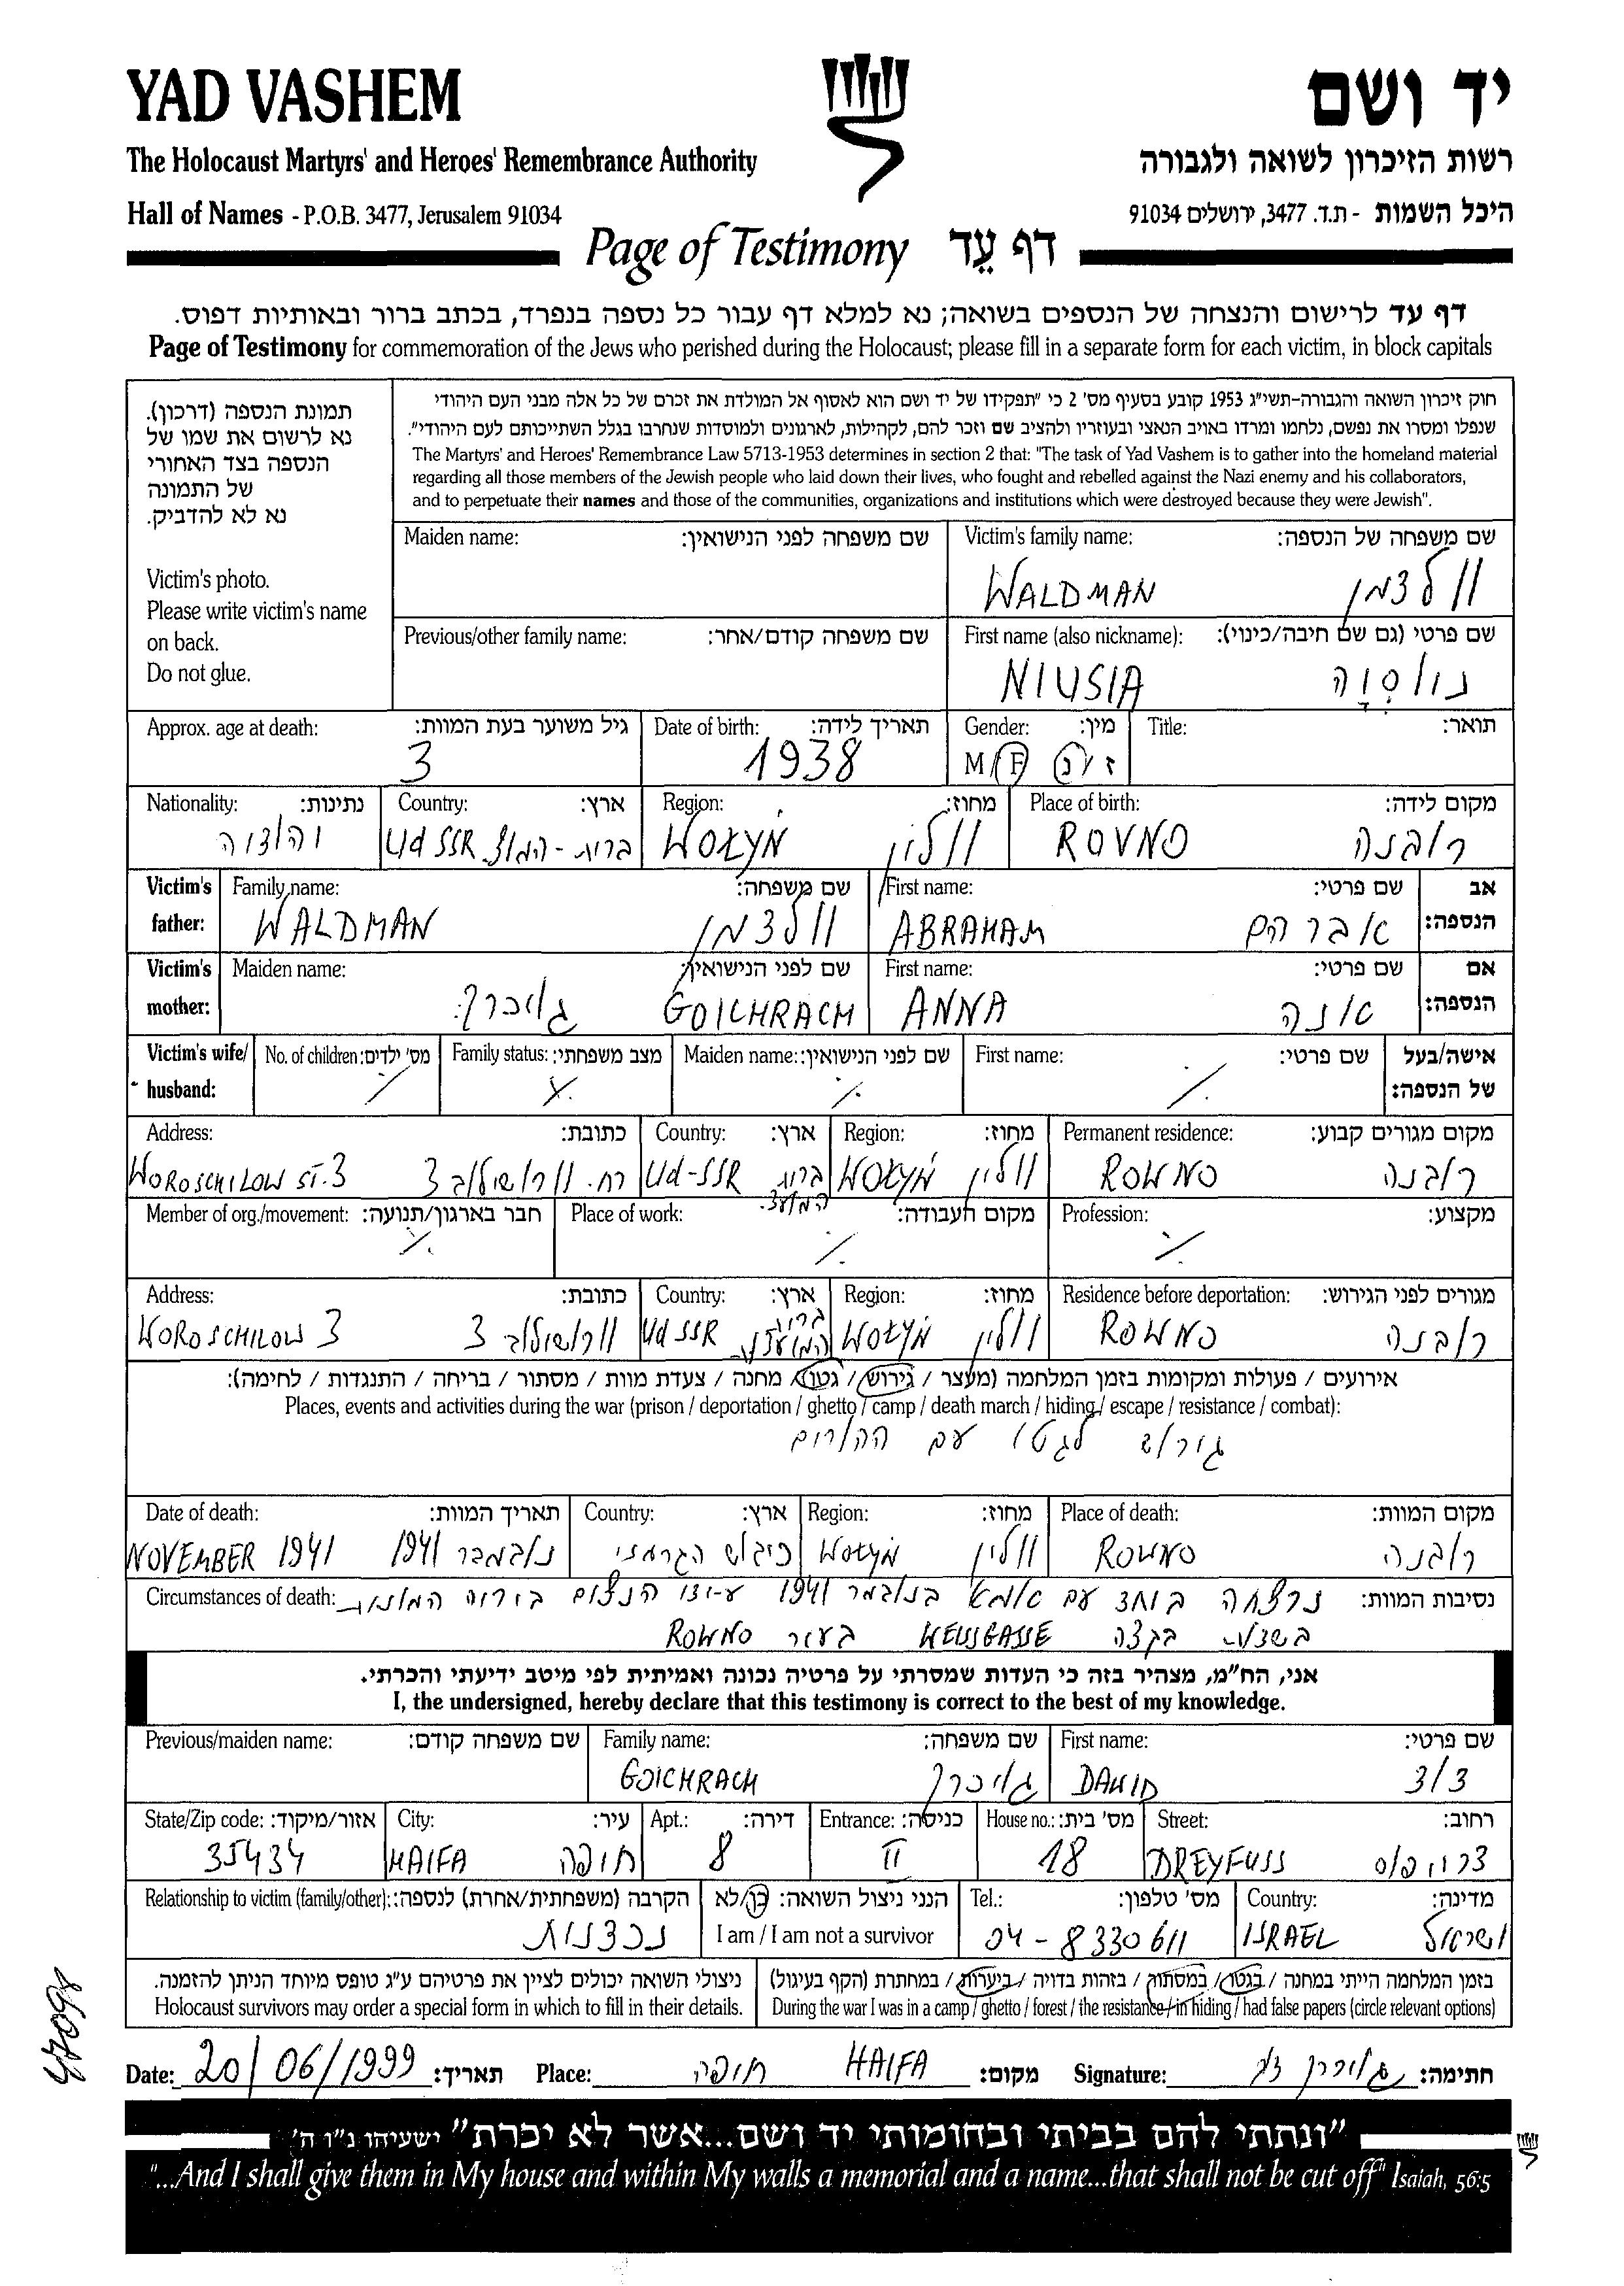 YAD VASHEM
יד ושם
The Holocaust Martyrs' and Heroes' Remembrance Authority
רשות הזיכרון לשואה ולגבורה
Hall of Names - P.O.B. 3477, Jerusalem 91034
היכל השמות - ת.ד. 3477, ירושלים 91034
Page of Testimony דף עֵד
דף עד לרישום והנצחה של הנספים בשואה; נא למלא דף עבור כל נספה בנפרד, בכתב ברור ובאותיות דפוס.
Page of Testimony for commemoration of the Jews who perished during the Holocaust; please fill in a separate form for each victim, in block capitals
תמונת הנספה (דרכון).
נא לרשום את שמו של
הנספה בצד האחורי
של התמונה
נא לא להדביק.
Victim's photo.
Please write victim's name
on back.
Do not glue.
חוק זיכרון השואה והגבורה-תשי"ג 1953 קובע בסעיף מס' 2 כי "תפקידו של יד ושם הוא לאסוף אל המולדת את זכרם של כל אלה מבני העם היהודי
שנפלו ומסרו את נפשם, נלחמו ומרדו באויב הנאצי ובעוזריו ולהציב שם וזכר להם, לקהילות, לארגונים ולמוסדות שנחרבו בגלל השתייכותם לעם היהודי".
The Martyrs' and Heroes' Remembrance Law 5713-1953 determines in section 2 that: "The task of Yad Vashem is to gather into the homeland material
regarding all those members of the Jewish people who laid down their lives, who fought and rebelled against the Nazi enemy and his collaborators,
and to perpetuate their names and those of the communities, organizations and institutions which were destroyed because they were Jewish".
Maiden name: שם משפחה לפני הנישואין:
Victim's family name: שם משפחה של הנספה:
WALDMAN וולדמן
Previous/other family name: שם משפחה קודם/אחר:
First name (also nickname): שם פרטי (גם שם חיבה/כינוי):
NIUSIA ניוסיה
Approx. age at death: גיל משוער בעת המוות:
3
Date of birth: תאריך לידה:
1938
Gender: מין:
M/F ז/נ
Title: תואר:
Nationality: נתינות:
יהודיה
Country: ארץ:
UdSSR ברית-המוע.
Region: מחוז:
WOŁYŃ וולין
Place of birth: מקום לידה:
ROVNO רובנה
Victim's father: Family name: שם משפחה:
WALDMAN וולדמן
First name: שם פרטי: אב הנספה:
ABRAHAM אברהם
Victim's mother: Maiden name: שם לפני הנישואין:
GOICHRACH גויכרך
First name: שם פרטי: אם הנספה:
ANNA אנה
Victim's wife/ husband: No. of children: מס' ילדים: Family status: מצב משפחתי: Maiden name: שם לפני הנישואין: First name: שם פרטי: אישה/בעל של הנספה:
Address: כתובת:
WOROSCHILOW ST. 3 רח. וורושילוב 3
Country: ארץ:
Ud-SSR ברית המועצ.
Region: מחוז:
WOŁYŃ וולין
Permanent residence: מקום מגורים קבוע:
ROWNO רובנה
Member of org./movement: חבר בארגון/תנועה: Place of work: מקום העבודה: Profession: מקצוע:
Address: כתובת:
WOROSCHILOW 3 וורושילוב 3
Country: ארץ:
UdSSR ברית המועצ.
Region: מחוז:
WOŁYŃ וולין
Residence before deportation: מגורים לפני הגירוש:
ROWNO רובנה
אירועים / פעולות ומקומות בזמן המלחמה (מעצר / גירוש / גטו / מחנה / צעדת מוות / מסתור / בריחה / התנגדות / לחימה):
Places, events and activities during the war (prison / deportation / ghetto / camp / death march / hiding / escape / resistance / combat):
גירוש לגטו עם ההורים
Date of death: תאריך המוות:
NOVEMBER 1941 נובמבר 1941
Country: ארץ:
כיבוש הגרמני
Region: מחוז:
WOŁYŃ וולין
Place of death: מקום המוות:
ROWNO רובנה
Circumstances of death: נסיבות המוות:
נרצחה ביחד עם אמא בנובמבר 1941 ע-ידי הנצים ביריה המונית
בקצה WEISSGASSE בעיר ROWNO
אני, הח"מ, מצהיר בזה כי העדות שמסרתי על פרטיה נכונה ואמיתית לפי מיטב ידיעתי והכרתי.
I, the undersigned, hereby declare that this testimony is correct to the best of my knowledge.
Previous/maiden name: שם משפחה קודם:
Family name: שם משפחה:
GOICHRACH גויכרך
First name: שם פרטי:
DAWID דוד
State/Zip code: אזור/מיקוד:
35434
City: עיר:
HAIFA חיפה
Apt.: דירה:
8
Entrance: כניסה:
II
House no.: מס' בית:
18
Street: רחוב:
DREYFUSS דרייפוס
Relationship to victim (family/other): הקרבה (משפחתית/אחרת) לנספה:
נכדנית
הנני ניצול השואה: כן/לא
I am / I am not a survivor
Tel.: מס' טלפון:
04-8330611
Country: מדינה:
ISRAEL ישראל
ניצולי השואה יכולים לציין את פרטיהם ע"ג טופס מיוחד הניתן להזמנה.
Holocaust survivors may order a special form in which to fill in their details.
בזמן המלחמה הייתי במחנה / בגטו / במסתור / בזהות בדויה / ביערות / במחתרת (הקף בעיגול)
During the war I was in a camp / ghetto / forest / the resistance / in hiding / had false papers (circle relevant options)
47098
Date: 20/06/1999 תאריך: Place: חיפה HAIFA מקום: Signature: גויכרך דוד חתימה:
"ונתתי להם בביתי ובחומותי יד ושם...אשר לא יכרת" ישעיהו נ"ו ה'
"...And I shall give them in My house and within My walls a memorial and a name...that shall not be cut off" Isaiah, 56:5